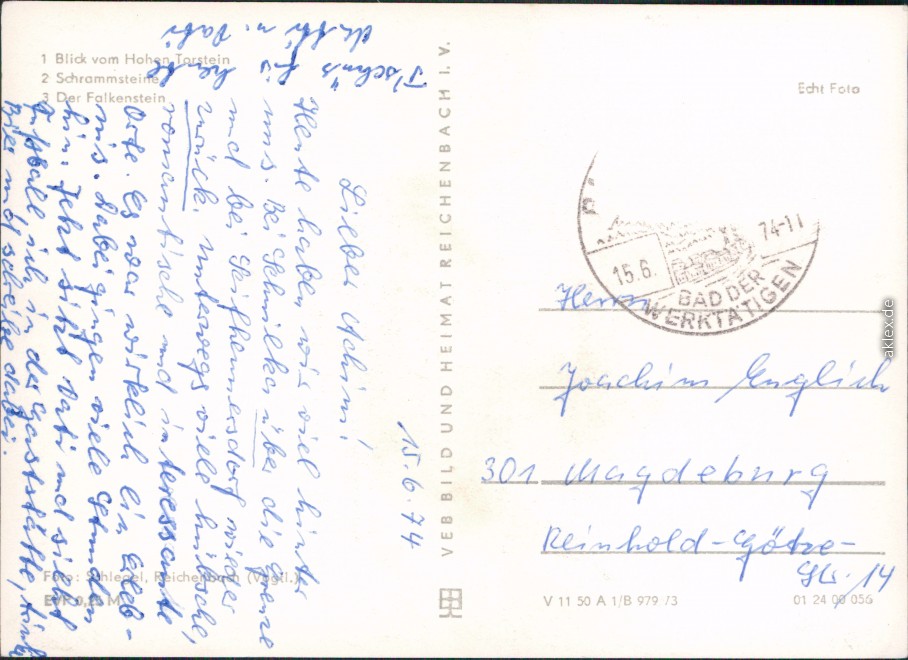 1 Blick vom Hohen Torstein
2 Schrammsteine
3 Der Falkenstein
15.6.74
Lieber Achim!
Heute haben wir viel hinter
uns. Bei Schmilka über die Grenze
und bei Seifhennersdorf wieder
zurück. Unterwegs viele hübsche,
romantische und interessante
Orte. Es war wirklich ein Erleb-
nis. Dabei gingen viele Stunden
hin. Jetzt sitzt Vati und sieht
Fußball ich in der Gaststätte, trink
Bier und schreibe dabei.
Tschüs für heute
Mutti u. Vati
Foto: Schlegel, Reichenbach (Vogtl.)
EVP 0,25 M
VEB BILD UND HEIMAT REICHENBACH I. V.
Echt Foto
15.6. 74-11
BAD DER
WERKTÄTIGEN
Herrn
Joachim Englich
301 Magdeburg
Reinhold-Götze-
Str. 14
V 11 50 A 1/B 979/3
01 24 00 056
aklex.de